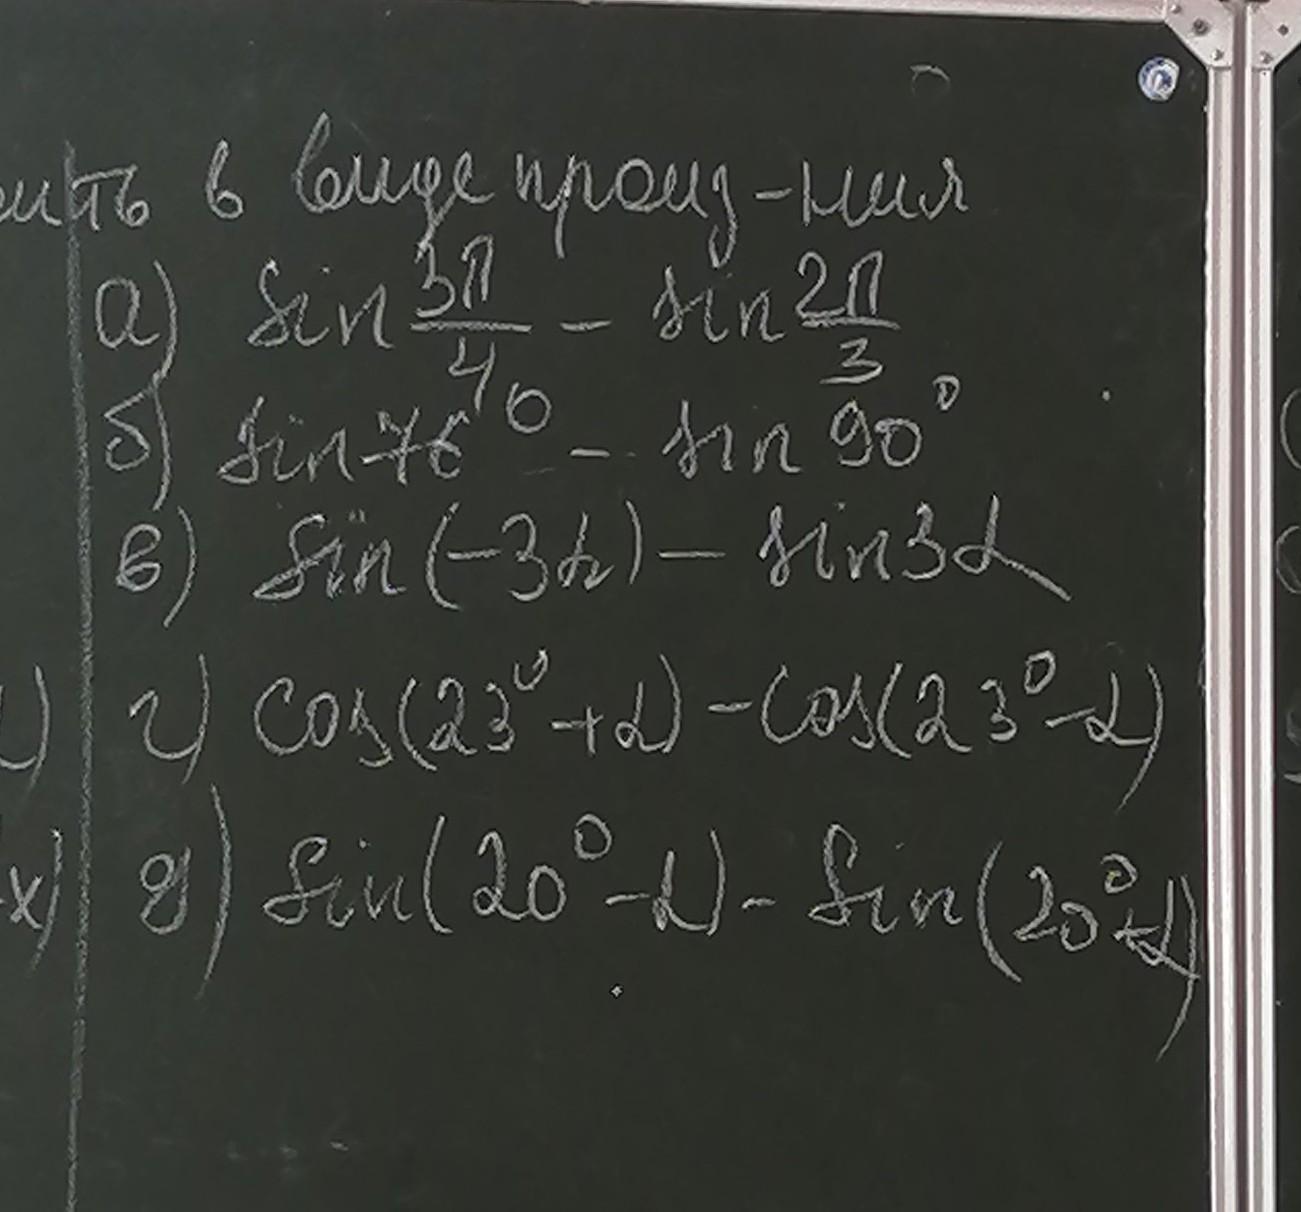 ить в виде произ-ния
а) sin 3π/4 - sin 2π/3
б) sin 76° - sin 90°
в) sin(-3α) - sin3α
г) cos(23°+α) - cos(23°-α)
х) д) sin(20°-α) - sin(20°+α)